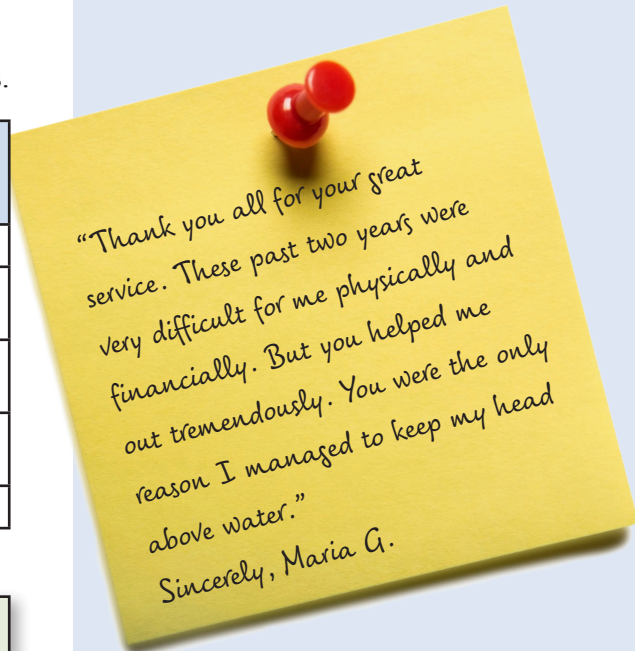 “Thank you all for your great
service. These past two years were
very difficult for me physically and
financially. But you helped me
out tremendously. You were the only
reason I managed to keep my head
above water.”
Sincerely, Maria G.